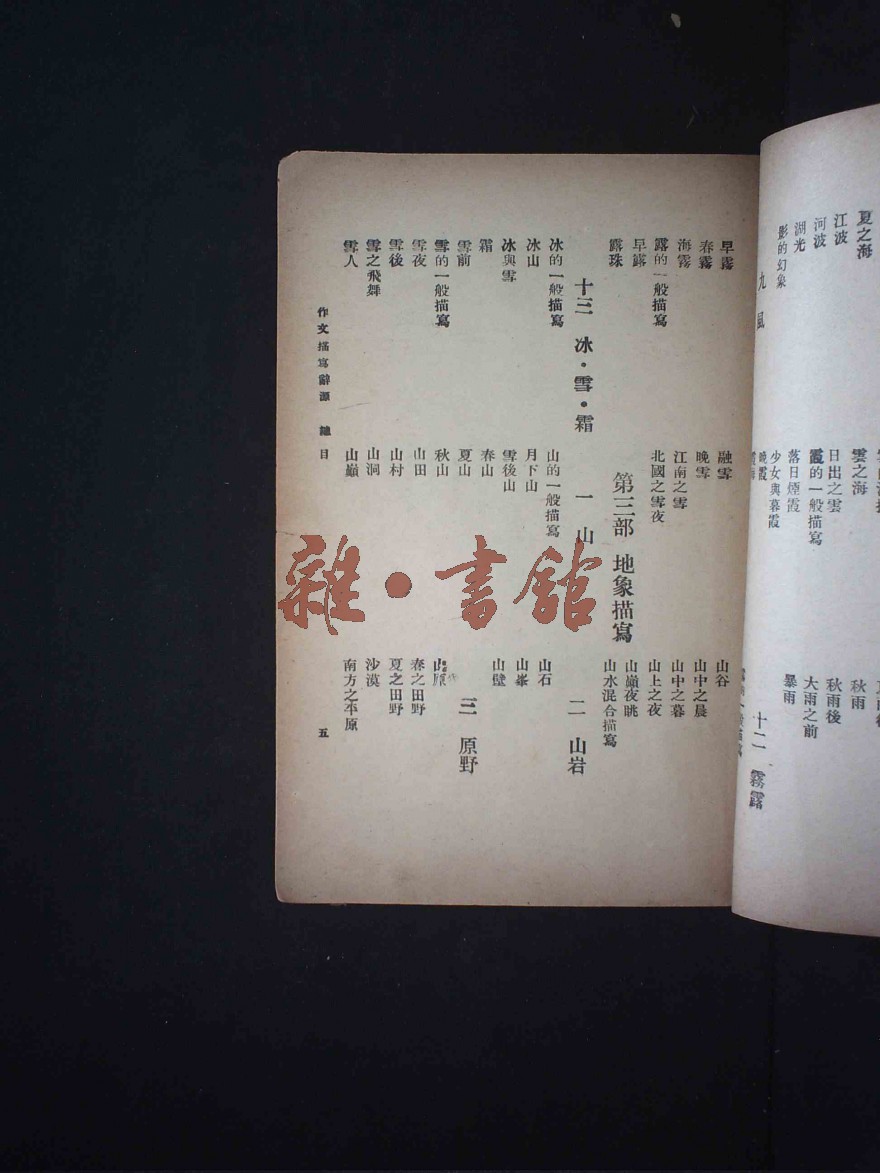 夏之海
江波
河波
湖光
影的幻象
九 風
雲之海
日出之雲
霞的一般描寫
落日煙霞
少女與暮霞
晚霞
秋雨
秋雨後
大雨之前
暴雨
十二 霧露
早霧
春霧
海霧
露的一般描寫
早露
露珠
十三 冰·雪·霜
冰的一般描寫
冰山
冰與雪
霜
雪前
雪的一般描寫
雪夜
雪後
雪之飛舞
雪人
融雪
晚雪
江南之雪
北國之雪夜
第三部 地象描寫
一 山
山的一般描寫
月下山
雪後山
春山
夏山
秋山
山田
山村
山洞
山巔
山谷
山中之晨
山中之暮
山上之夜
山巔夜眺
山水混合描寫
二 山岩
山石
山峯
山壁
三 原野
春之田野
夏之田野
沙漠
南方之平原
作文描寫辭源 總目
五
雜·書館